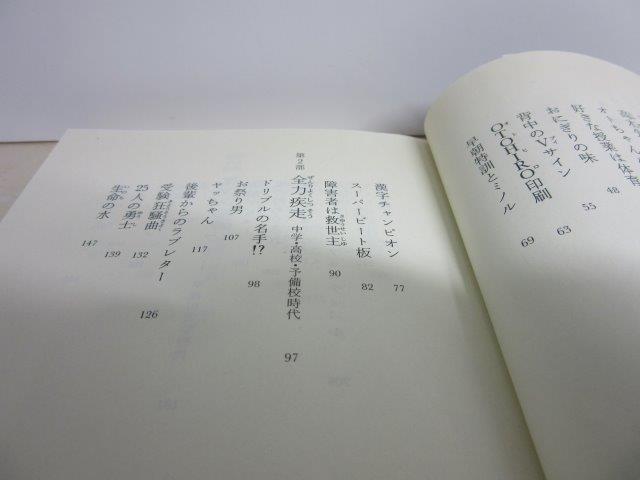 オトちゃん
好きな授業は体育 48
おにぎりの味 55
背中のVサイン 63
OTOHIRO印刷 69
早朝特訓とミノル
漢字チャンピオン 77
スーパービート板 82
障害者は救世主 90
第2部 全力疾走 中学・高校・予備校時代 97
ドリブルの名手!? 98
お祭り男 107
ヤッちゃん 117
後輩からのラブレター 126
受験狂騒曲 132
25人の勇士 139
生命の水 147